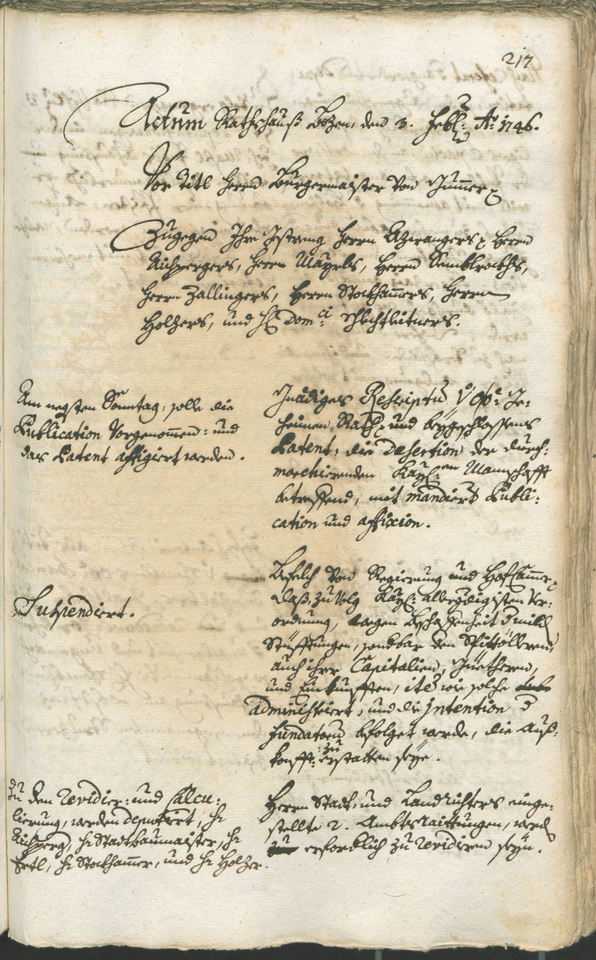 217
Actum Rathshauß Bozen, den 3. Feb: Ao 1746.
Vor Titl Herrn Burgermaister von Zummer
Zugegen Ihro Herrn
Herrn Mayrls, Herrn
Herrn Zallingers, Herrn Stockhamers, Herrn
Holzers, und
Am negsten Sonntag, solle die
Publication vorgenomen: und
das Patent affigiert werden.
Gnädiges Rescriptum Ge-
heimen Rath, und beygeschlossenes
Patent, die Desertion der durch-
marchierenden Kay: Mannschafft
betreffend, mit mandiert Publi-
cation und affixion.
Suspendiert.
Befelch von Regierung und Hofcammer,
daß zu volg Kay: allergnädigisten Ver-
ordnung, wegen Beschaffenheit
Stüfftungen, den Spittöllern,
auch ihrer Capitalien, Güethern,
und Einkunfften, item wie solche
administriert, und die Intention
Fundatorum befolget werde, die Auß-
konfft zu erstatten seye.
Zu dem Revidier: und Calcu-
lierung, werden deputiert, H:
H: Stadtbaumaister, H:
Ertl, H: Stockhamer, und H: Holzer.
Herrn Stadt, und Landrichters einge-
stellte 2. Ambts Raittungen, werden
erforderlich zu revidieren seyn.